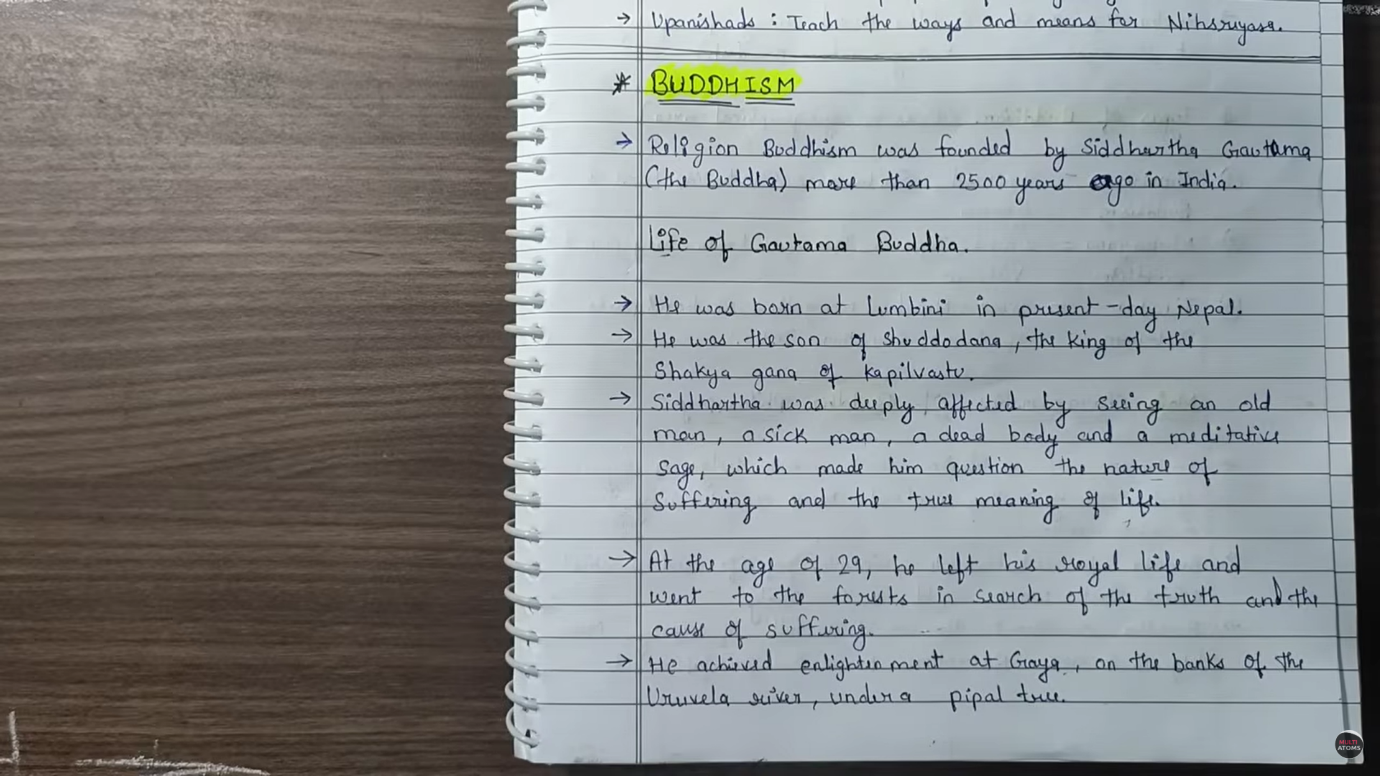 → Upanishads : Teach the ways and means for Nihsruyasa.
* BUDDHISM
→ Religion Buddhism was founded by Siddhartha Gautama
(the Buddha) more than 2500 years ago in India.
Life of Gautama Buddha.
→ He was born at Lumbini in present-day Nepal.
→ He was the son of Shuddodana, the king of the
Shakya gana of Kapilvastu.
→ Siddhartha was deeply affected by seeing an old
man, a sick man, a dead body and a meditative
sage, which made him question the nature of
suffering and the true meaning of life.
→ At the age of 29, he left his royal life and
went to the forests in search of the truth and the
cause of suffering.
→ He achieved enlightenment at Gaya, on the banks of the
Uruvela river, under a pipal tree.
MULTI
ATOMS